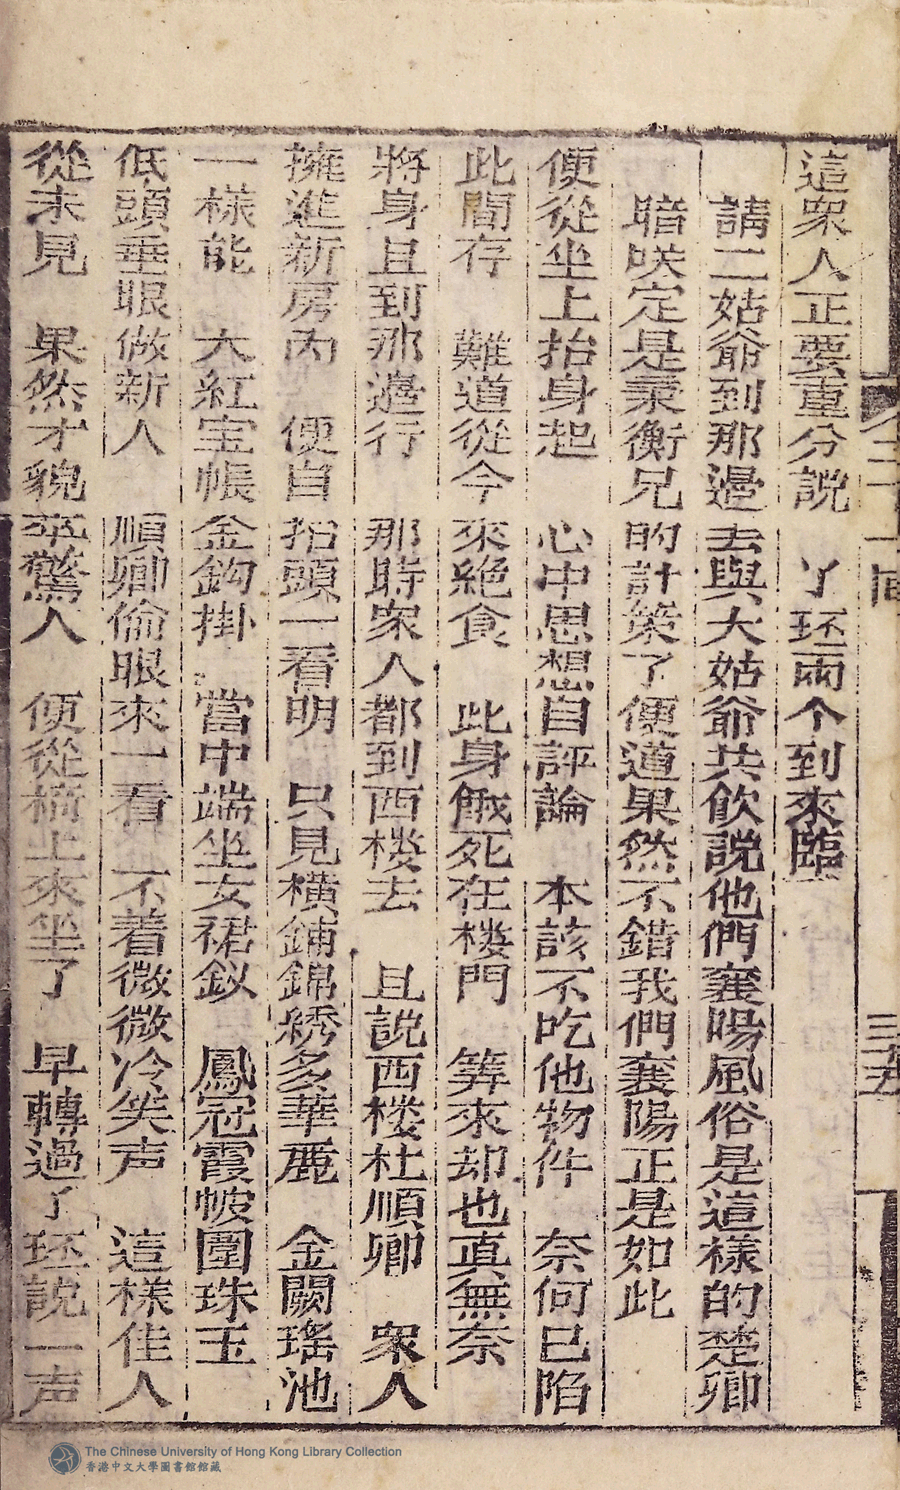 這衆人正要重分說　丫环兩个到來臨
請二姑爺到那邊去與大姑爺共飲說他們襄陽風俗是這樣的楚卿
暗咲定是秉衡兄的計策了便道果然不錯我們襄陽正是如此
便從坐上抬身起　心中思想自評論　本該不吃他物件　奈何已陷
此間存　難道從今來絕食　此身餓死在楼門　筭來却也真無奈
將身且到那邊行　那時衆人都到西楼去　且說西楼杜順卿　衆人
擁進新房內　便自抬頭一看明　只見橫鋪錦綉多華麗　金闕瑤池
一樣能　大紅宝帳金鈎掛　當中端坐女裙釵　鳳冠霞帔圍珠玉
低頭垂眼做新人　順卿偷眼來一看　不着微微冷笑声　這樣佳人
從未見　果然才貌卒驚人　便從椅上來坐了　早轉過了环說一声
二十一回
三十五
The Chinese University of Hong Kong Library Collection
香港中文大學圖書館館藏